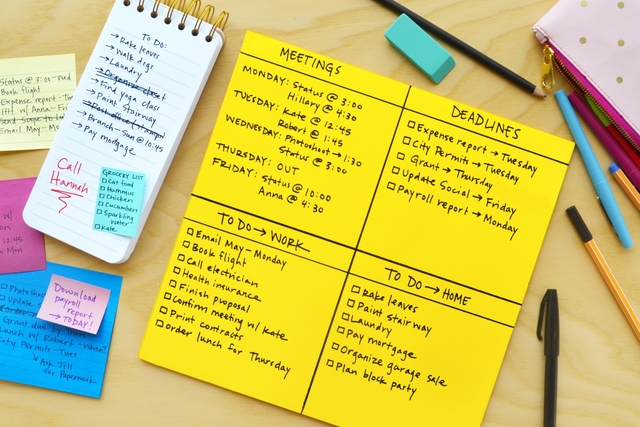 Status @ 3:00 - Wed
Book flight
Expense report - Tu
HH w/ Anna - Fri
Send soups to
Email May - Mon
TO DO:
→ Rake leaves
→ Walk dogs
→ Laundry
→ Organize closet
→ Find yoga class
→ Paint Stairway
→ Post office
→ Branch - Sun @ 10:45
→ Pay mortgage
Call
Hannah
GROCERY LIST
Cat food
Hummus
Chicken
Cucumber
Sparkling
Water
Kale
w/
12:45
Mon
Download
payroll
report
→ TODAY!
Photosh
Update S
Grant due
Lunch w/ Robert - when?
City Permits - Tues
↳ Ask Jill
for Paperwork
MEETINGS
MONDAY: Status @ 3:00
Hillary @ 4:30
TUESDAY: Kate @ 12:45
Robert @ 1:45
WEDNESDAY: Photoshoot → 1:30
Status @ 3:00
THURSDAY: OUT
FRIDAY: Status @ 10:00
Anna @ 4:30
DEADLINES
Expense report → Tuesday
City Permits → Tuesday
Grant → Thursday
Update Social → Friday
Payroll report → Monday
TO DO → WORK
Email May - Monday
Book flight
Call electrician
Health insurance
Finish proposal
Confirm meeting w/ Kate
Print contracts
Order lunch for Thursday
TO DO → HOME
Rake leaves
Paint Stairway
Laundry
Pay mortgage
Organize garage sale
Plan block party